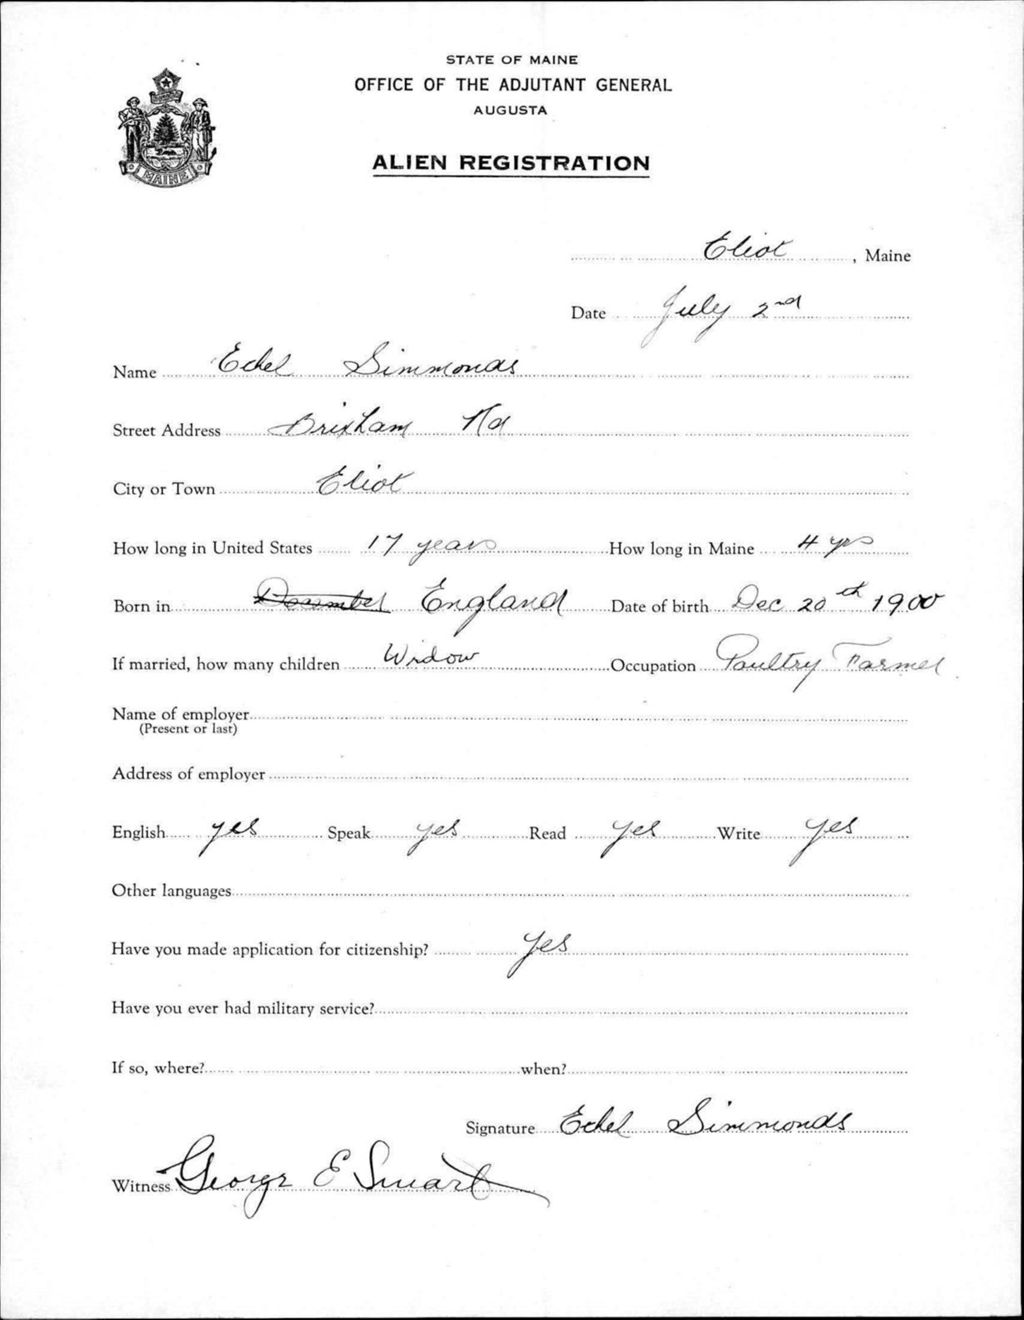 STATE OF MAINE
OFFICE OF THE ADJUTANT GENERAL
AUGUSTA
MAINE
ALIEN REGISTRATION
Eliot, Maine
Date July 2nd
Name Ethel Simmonds
Street Address Brixham Rd
City or Town Eliot
How long in United States 17 years How long in Maine 4 yrs
Born in December England Date of birth Dec 20th 1900
If married, how many children Widow Occupation Poultry Farmer
Name of employer
(Present or last)
Address of employer
English yes Speak yes Read yes Write yes
Other languages
Have you made application for citizenship? Yes
Have you ever had military service?
If so, where? when?
Signature Ethel Simmonds
Witness George E Smart